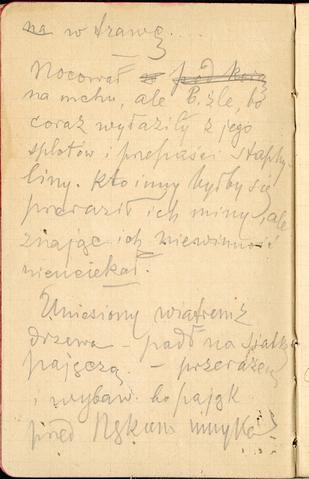 na w trawę...
Nocował pod korą
na mchu, ale B. źle, bo
coraz wyłaziły z jego
splotów i przepaści staphy-
liny. Kto inny byłby się
przeraził ich miny, ale
znając ich niewinność
nieuciekał.
Uniesiony wiatrem z
drzewa – padł na siatkę
pajęczą. – przerażen
i wybaw. bo pająk
przed Bąkiem umyka